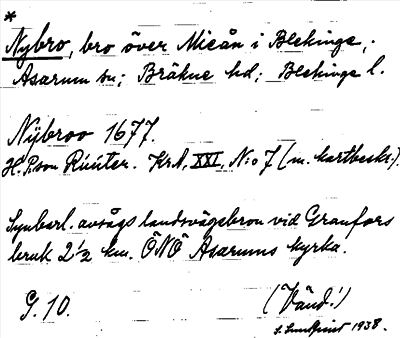 *
Nybro, bro över Mieån i Blekinge,
Asarum sn; Bräkne hd; Blekinge l.
Nÿbroo 1677.
H. P:son Ruuter. Kr.A. XXI, N:o 7 (m. kartbeskr.).
Synbarl. avsågs landsvägsbron vid Granfors
bruk 2 1/2 km. ÖNÖ Asarums kyrka.
G. 10. (Vänd!)
S. Sundquist 1938.